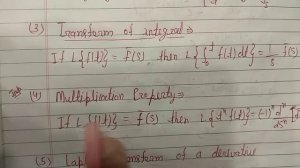 (3) Transform of integral ⇒
If L{f(t)} = f(s), then L{∫₀ᵗ f(t) dt} = 1/s f(s)
(4) Multiplication Property ⇒
If L{f(t)} = f(s) then L{tⁿ f(t)} = (-1)ⁿ dⁿ/dsⁿ
(5) Laplace transform of a derivative